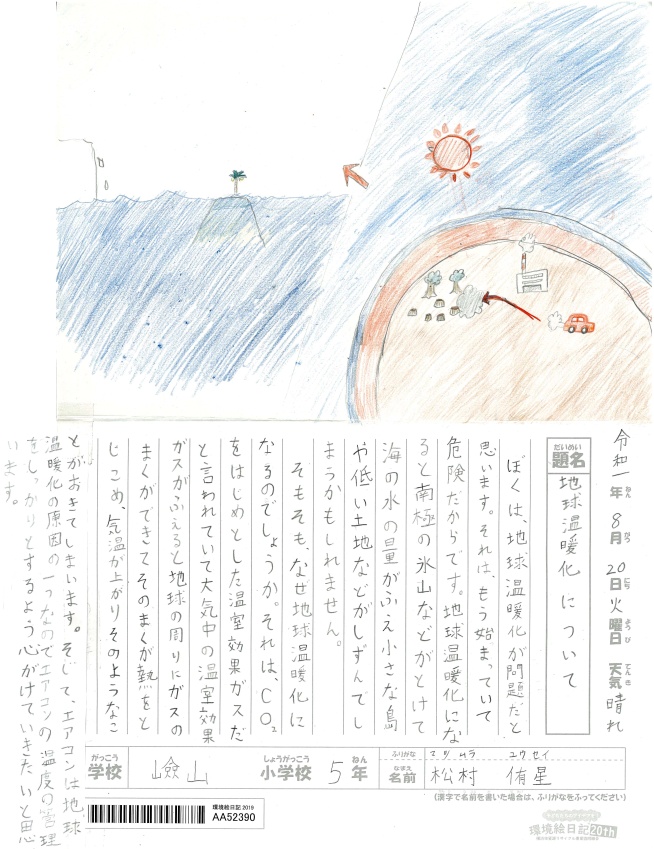 令和一年 8月 20日 火曜日 天気 晴れ
ねん がつ にち ようび てんき
だいめい
題名
地球温暖化について
ぼくは、地球温暖化が問題だと
思います。それは、もう始まっていて
危険だからです。地球温暖化にな
ると南極の氷山などがとけて
海の水の量がふえ小さな島
や低い土地などがしずんでし
まうかもしれません。
そもそもなぜ地球温暖化に
なるのでしょうか。それは、CO₂
をはじめとした温室効果ガスだ
と言われていて大気中の温室効果
ガスがふえると地球の周りにガスの
まくができてそのまくが熱をと
じこめ、気温が上がりそのようなこ
とがおきてしまいます。そして、エアコンは地球
温暖化の原因の一つなのでエアコンの温度の管理
をしっかりとするよう心がけていきたいと思
います。
がっこう しょうがっこう ねん ふりがな マツムラ ユウセイ
学校 山 小学校 5年 なまえ 名前 松村 侑星
(漢字で名前を書いた場合は、ふりがなをふってください)
環境絵日記 2019
AA52390
環境絵日記 20th